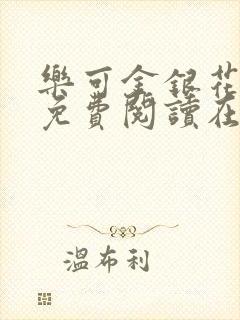 樂可金銀花
免費閱讀在
溫布利